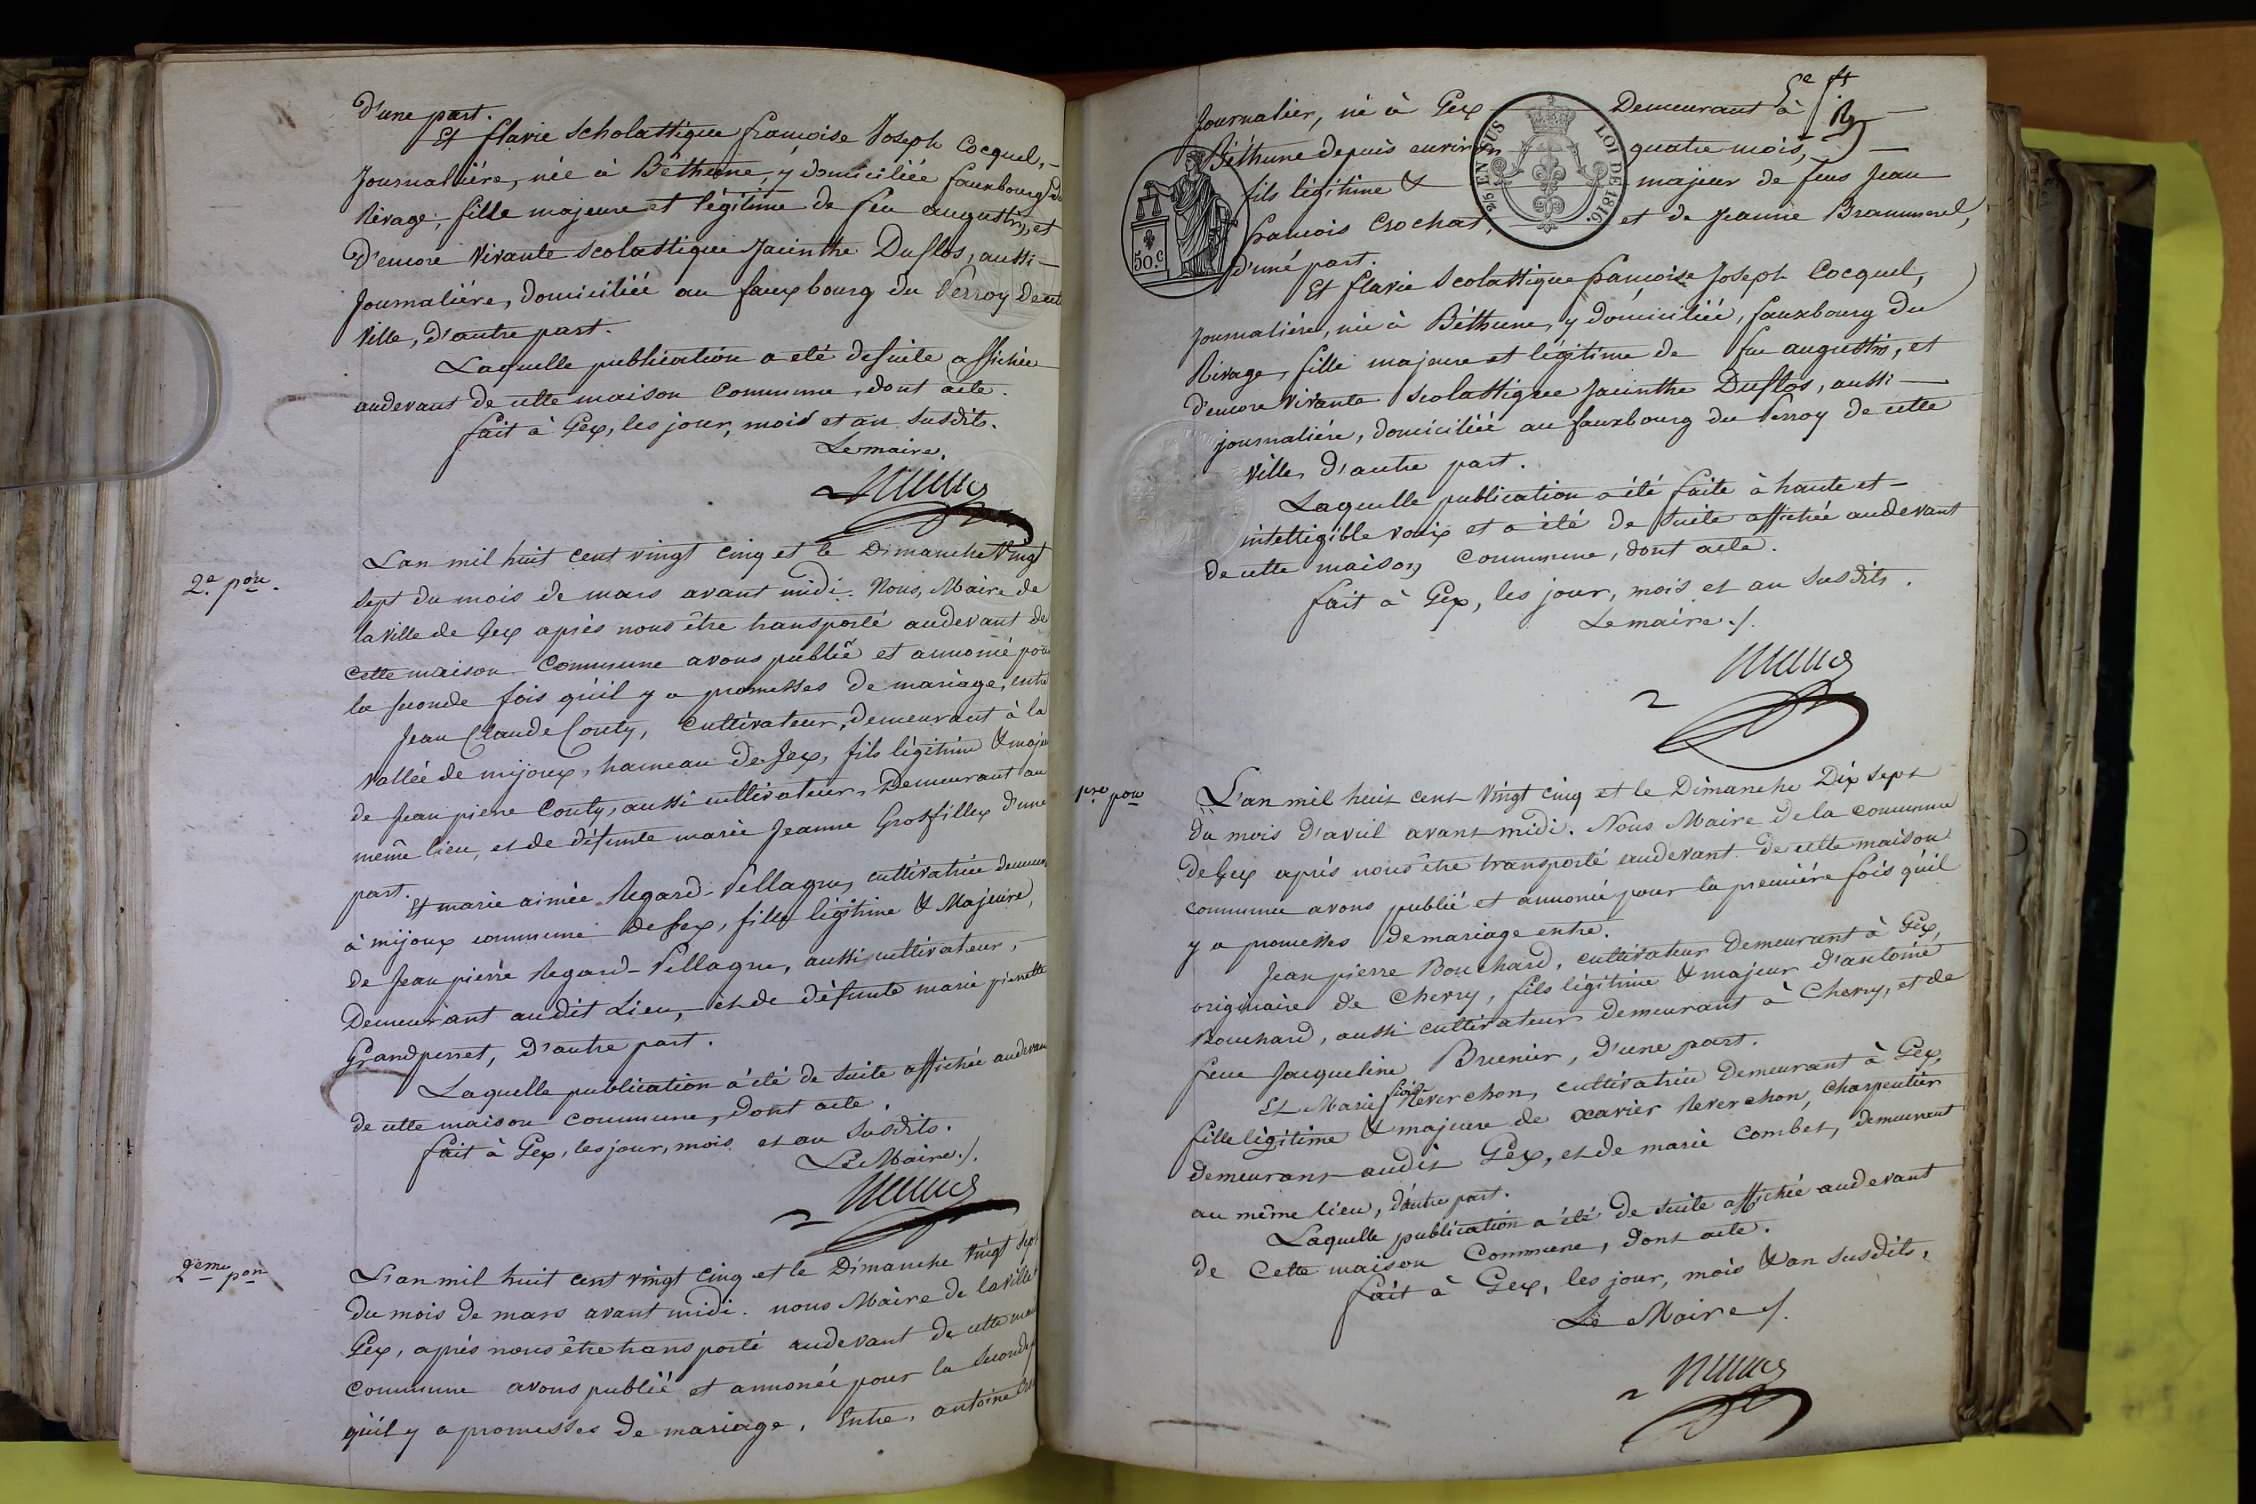 d'une part.
Et flavie scholastique francoise Joseph Cocquel,
Journalière, née à Béthune, y domiciliée fauxbourg du
Rivage, fille majeure et légitime de feu augustin, et
d'encore vivante scolastique Jacinthe Duflos, aussi
Journalière, domiciliée au fauxbourg du Perroy de cette
ville, d'autre part.
Laquelle publication a eté desuite affichée
audevant de cette maison commune, dont acte.
fait à Gex, les jour, mois et an susdits.
Lemaire.
2e. pon.
L'an mil huit cent vingt cinq et le Dimanche vingt
sept du mois de mars avant midi. Nous, Maire de
la ville de Gex après nous être transporté audevant de
cette maison commune avons publié et annoncé pour
la seconde fois qu'il y a promesses de mariage, entre
Jean Claude Couty, cultivateur, demeurant à la
vallée de mijoux, hameau de Gex, fils légitime & majeur
de Jean pierre Couty, aussi cultivateur, Demeurant au
même lieu, et de défunte marie Jeanne Grosfillex d'une
part.
Et marie aimée Regard-Villagne, cultivatrice demeurant
à mijoux commune de Gex, fille légitime & Majeure,
de Jean pierre Regard-Villagne, aussi cultivateur,
Demeurant audit Lieu, et de défunte marie pierrette
Grandperret, d'autre part.
Laquelle publication a été de suite affichée audevant
de cette maison commune, dont acte.
fait à Gex, les jour, mois et an susdits.
Le Maire./.
2eme pon
L'an mil huit cent vingt cinq et le Dimanche vingt sept
du mois de mars avant midi. nous Maire de la ville de
Gex, après nous être transporté audevant de cette maison
commune avons publié et annoncé pour la seconde fois
qu'il y a promesses de mariage. Entre. antoine
Journalier, né à Gex Demeurant à
Béthune depuis environ quatre mois,
fils légitime & majeur de feus Jean
francois Crochat, et de Jeanne Brammerel,
d'une part.
2/5 EN SUS LOI DE 1816.
50.c
Et flavie Scolastique françoise Joseph Cocquel,
Journalière, née à Béthune, y domiciliée, fauxbourg du
Rivage, fille majeure et légitime de feu augustin, et
d'encore vivante scolastique Jacinthe Duflos, aussi
journalière, domiciliée au fauxbourg du Perroy de cette
ville, d'autre part.
Laquelle publication a été faite à haute et
intelligible voix et a été de suite affichée audevant
de cette maison commune, dont acte.
fait à Gex, les jour, mois et an susdits.
Lemaire./.
1ere pon
L'an mil huit cent vingt cinq et le Dimanche Dix sept
du mois d'avril avant midi. Nous Maire de la commune
de Gex après nous être transporté audevant de cette maison
commune avons publié et annoncé pour la première fois qu'il
y a promesses de mariage entre.
Jean pierre Bouchard, cultivateur demeurant à Gex,
originaire de Chevry, fils légitime & majeur d'antoine
Bouchard, aussi cultivateur demeurant à Chevry, et de
feue Jacqueline Brunier, d'une part.
Et Marie Reverchon, cultivatrice demeurant à Gex,
fille légitime & majeure de xavier Reverchon, charpentier
demeurant audit Gex, et de marie Combet, demeurant
au même lieu, d'autre part.
Laquelle publication a été de suite affichée audevant
de Cette maison Commune, dont acte.
fait à Gex, les jour, mois & an susdits,
Le Maire./.